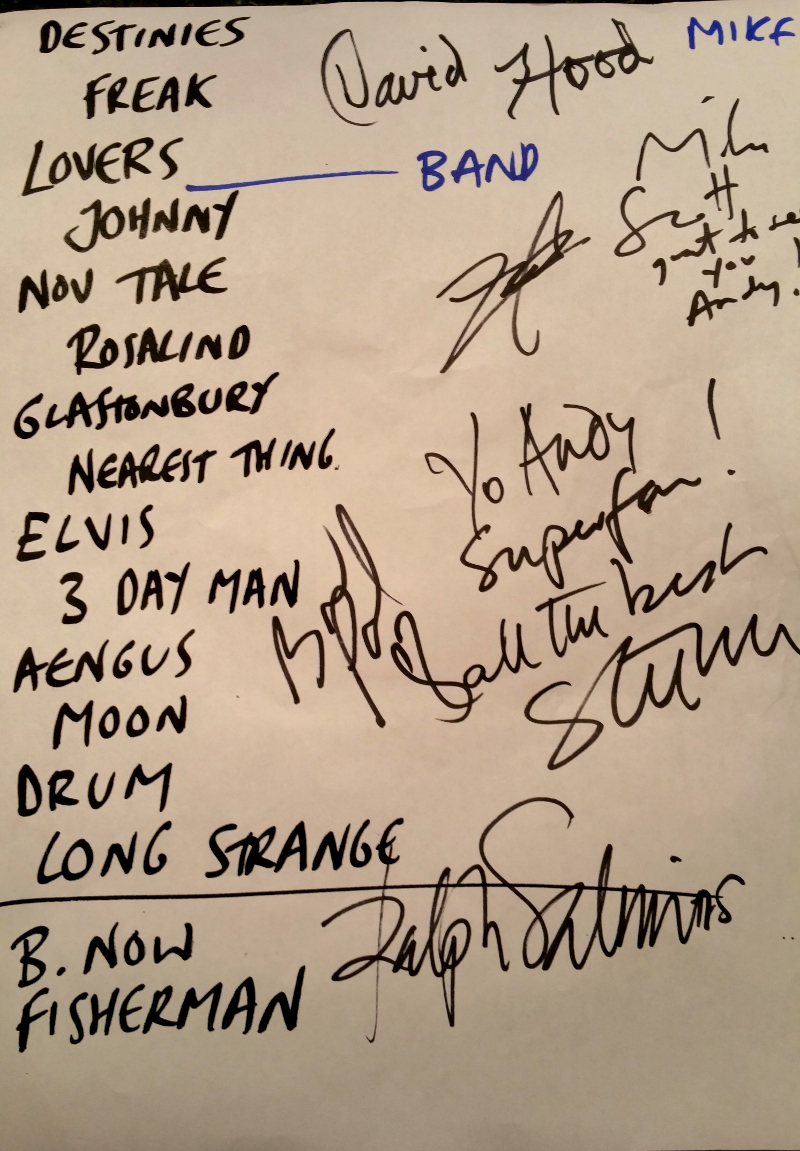 DESTINIES
FREAK
LOVERS BAND
JOHNNY
NOV TALE
ROSALIND
GLASTONBURY
NEAREST THING.
ELVIS
3 DAY MAN
AENGUS
MOON
DRUM
LONG STRANGE
B. NOW
FISHERMAN
David Hood
MIKE
Mike
Scott
great to see
you
Andy!
Yo Andy
Superfan!
all the best
Steve
Ralph Salmins